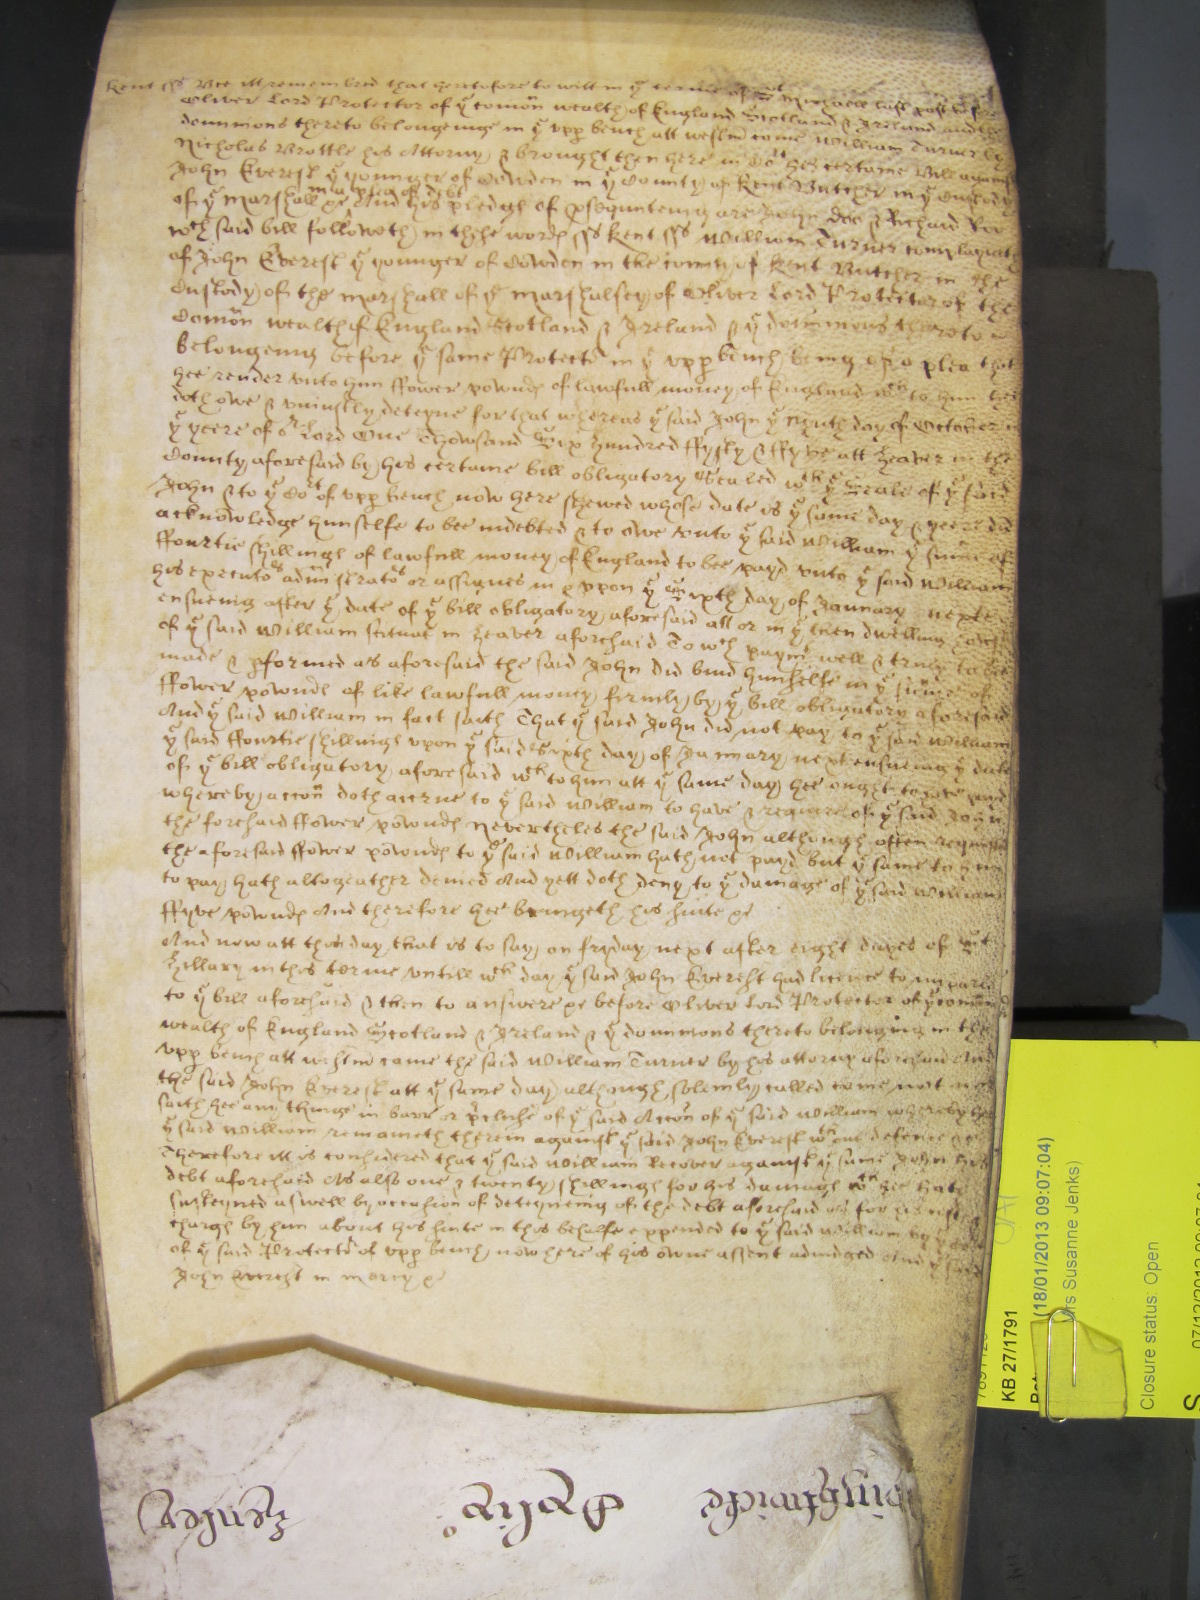 Kent ss Bee itt remembred that heretofore to witt in ye terme of st Michaell last past before
Oliver Lord Protector of ye comon wealth of England Scotland & Ireland and the
dominions thereto belongeinge in ye upp bench att westm came William Turner by
Nicholas Brottle his Attorny & brought then here in Cort his certaine Bill against
John Everest ye younger of Cowden in ye County of Kent Butcher in ye Custody
in a plea of debt
of ye Marshall &c And his pledgs of psequuteing are John Doe & Richard Roe
wch said bill followeth in these words ss Kent ss William Turner complaineth
of John Everest ye younger of Cowden in the county of Kent Butcher in the
Custody of the Marshall of ye Marshalsey of Oliver Lord Protector of the
Comon wealth of England Scotland & Ireland & ye dominions thereto
belongeing before ye same Protector in ye upp bench being of a plea that
hee render unto him ffower pounds of lawfull money of England wch to him hee
doth owe & uniustly deteyne for that whereas ye said John ye day of October in
ye yeere of or Lord One Thowsand Six hundred ffyfty & ffyve att Heaver in the
County aforesaid by his certaine bill obligatory Sealed wth ye Seale of ye said
John & to ye Cort of upp bench now here shewed whose date is ye same day & yeere did
acknowledge himselfe to bee indebted & to owe unto ye said William ye sume of
ffourtie shillings of lawfull money of England to bee payd unto ye said William
his executors administrators or assignes in & uppon ye Sixth day of January next
ensueing after ye date of ye bill obligatory aforesaid att or in ye then dwelling house
of ye said William scituat in Heaver aforesaid To wch paymt well & truly to bee
made & pformed as aforesaid the said John did bind himselfe in ye sume of
ffower pownds of like lawfull money firmly by ye bill obligatory aforesaid
And ye said William in fact saith That ye said John did not pay to ye said William
ye said ffourtie shillings upon ye said Sixth day of January next ensueing ye date
of ye bill obligatory aforesaid wch to him att ye same day hee ought to have paid
whereby accon doth accrue to ye said William to have & require of ye said John
the foresaid ffower pownds Nevertheles the said John although often requested
the aforesaid ffower pownds to ye said William hath not payd but ye same to him
to pay hath altogeather denied And yett doth deny to ye damage of ye said William
ffyve pownds And therefore hee bringeth his suite &c
And now att this day that is to say on fryday next after eight dayes of st
Hillary in this terme untill wch day ye said John Everest had licence to imparle
to ye bill aforesaid & then to answere &c before Oliver Lord Protector of ye comon
wealth of England Scotland & Ireland & ye dominions thereto belonging in the
upp bench att westm came the said William Turner by his attorny aforesaid And
the said John Everest att ye same day although solemly called came not nor
saith hee any thinge in barr or pclusion of ye said Accon of ye said William whereby hee
ye said William remaineth therein against ye said John Everest wthout defence &c
Therefore itt is considered that ye said William Recover against ye same John his
debt aforesaid As also one & twenty shillings for his damags wch hee hath
susteyned aswell by occasion of deteyneing of the debt aforesaid as for his costs &
chargs by him about his suite in this behalfe expended to ye said William by ye Cort
of ye said Protector of upp bench now here of his owne assent adiudged And ye said
John Everest in mercy &c
KB 27/1791
(18/01/2013 09:07:04)
Susanne Jenks)
Closure status: Open